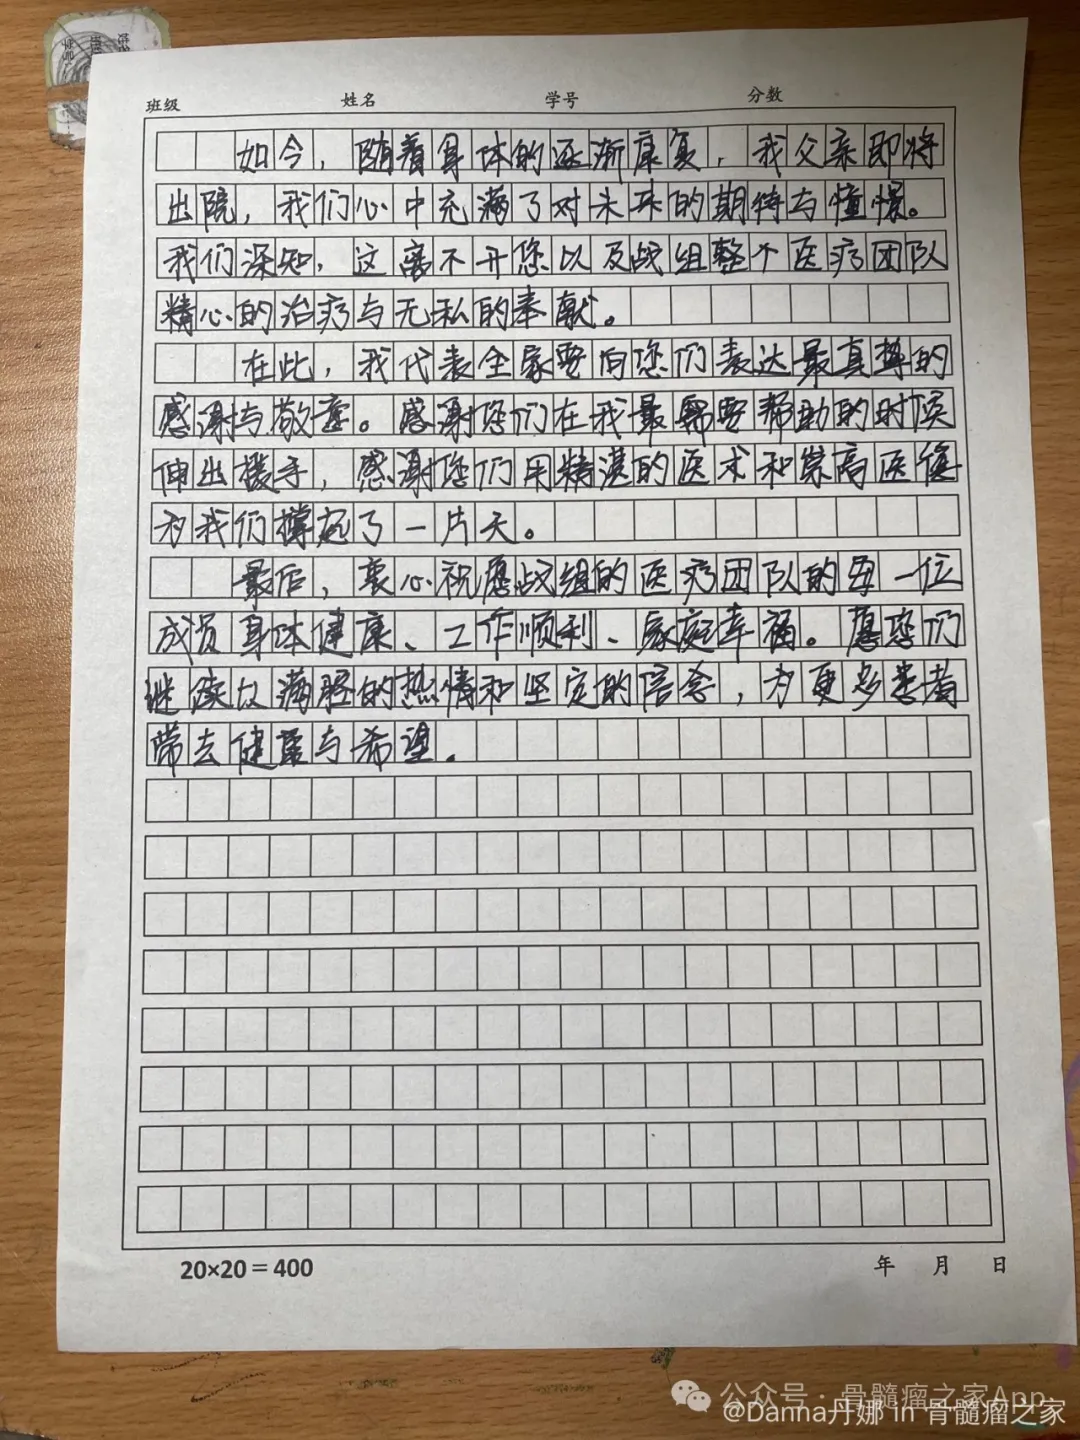 班级 姓名 学号 分数
如今，随着身体的逐渐康复，我父亲即将
出院，我们心中充满了对未来的期待与憧憬。
我们深知，这离不开您以及战组整个医疗团队
精心的治疗与无私的奉献。
在此，我代表全家要向您们表达最真挚的
感谢与敬意。感谢您们在我最需要帮助的时候
伸出援手，感谢您们用精湛的医术和崇高医德
为我们撑起了一片天。
最后，衷心祝愿战组的医疗团队的每一位
成员身体健康、工作顺利、家庭幸福。愿您们
继续以满腔的热情和坚定的信念，为更多患者
带去健康与希望。
20×20＝400
年 月 日
公众号·骨髓瘤之家App
@Danna丹娜 in 骨髓瘤之家